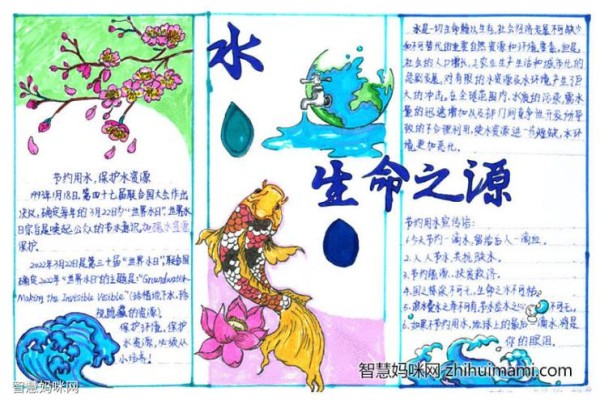 水
生命之源
节约用水,保护水资源
1993年1月18日,第四十七届联合国大会作出
决议,确定每年的3月22日为"世界水日"。世界水
日宗旨是唤起公众的节水意识,加强水资源
保护。
2022年3月22日是第三十届"世界水日",联合国
确定2022年"世界水日"的主题是:"Groundwater
Making the Invisible Visible"(珍惜地下水,珍
视隐藏的资源)
保护环境,保护
水资源,必须从
小培养!
水是一切生命赖以生存,社会经济发展不可缺少
和不可替代的重要自然资源和环境要素。但是,
社会的人口增长,工农业生产生活和城市化的
急剧发展,对有限的水资源及水环境产生了巨
大的冲击。在全球范围内,水质的污染,需水
量的迅速增加以及部门间竞争性开发所导
致的不合理利用,使水资源进一步短缺,水环
境更加恶化。
节约用水宣传语:
1.今天节约一滴水,留给后人一滴血。
2.人人节水,共抗缺水。
6.如果不节约用水,地球上的最后一滴水,将是
你的眼泪。
智慧妈咪网
智慧妈咪网 zhihuimami.com